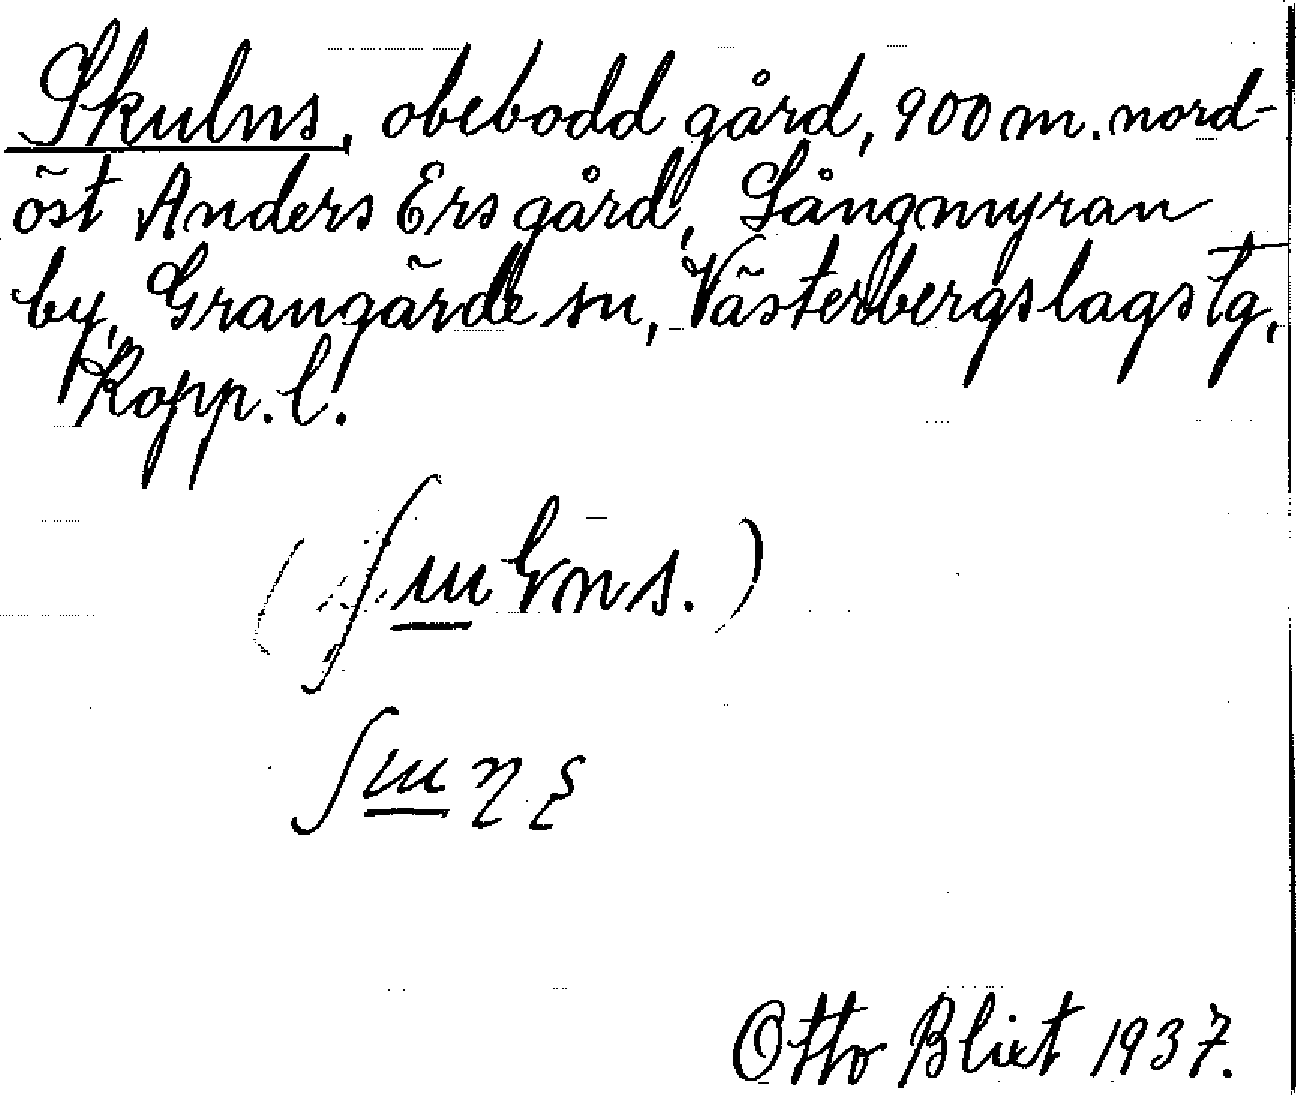 Skulns, obebodd gård, 900 m. nord-
öst Anders Ers gård, Långmyran
by, Grangärde sn, Västerbergslags tg,
Kopp. l.
Otto Blixt 1937.